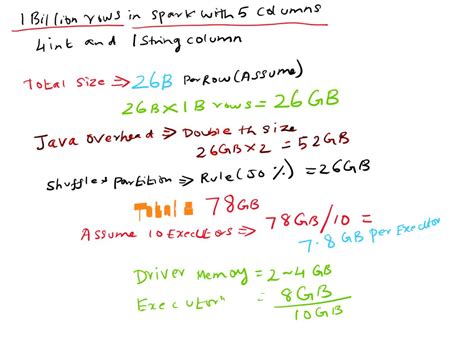 1 Billion rows in spark with 5 columns
4 int and 1 String column
Total size ⇒ 26B Per Row (Assume)
26B × 1B rows = 26 GB
Java overhead ⇒ Double th size
26GB × 2 = 52 GB
Shuffle & Partition ⇒ Rule (50 %) = 26GB
Total = 78GB
Assume 10 Executors ⇒ 78GB/10 =
7.8 GB per Executor
Driver Memory = 2~4 GB
Executor " = 8GB
10GB